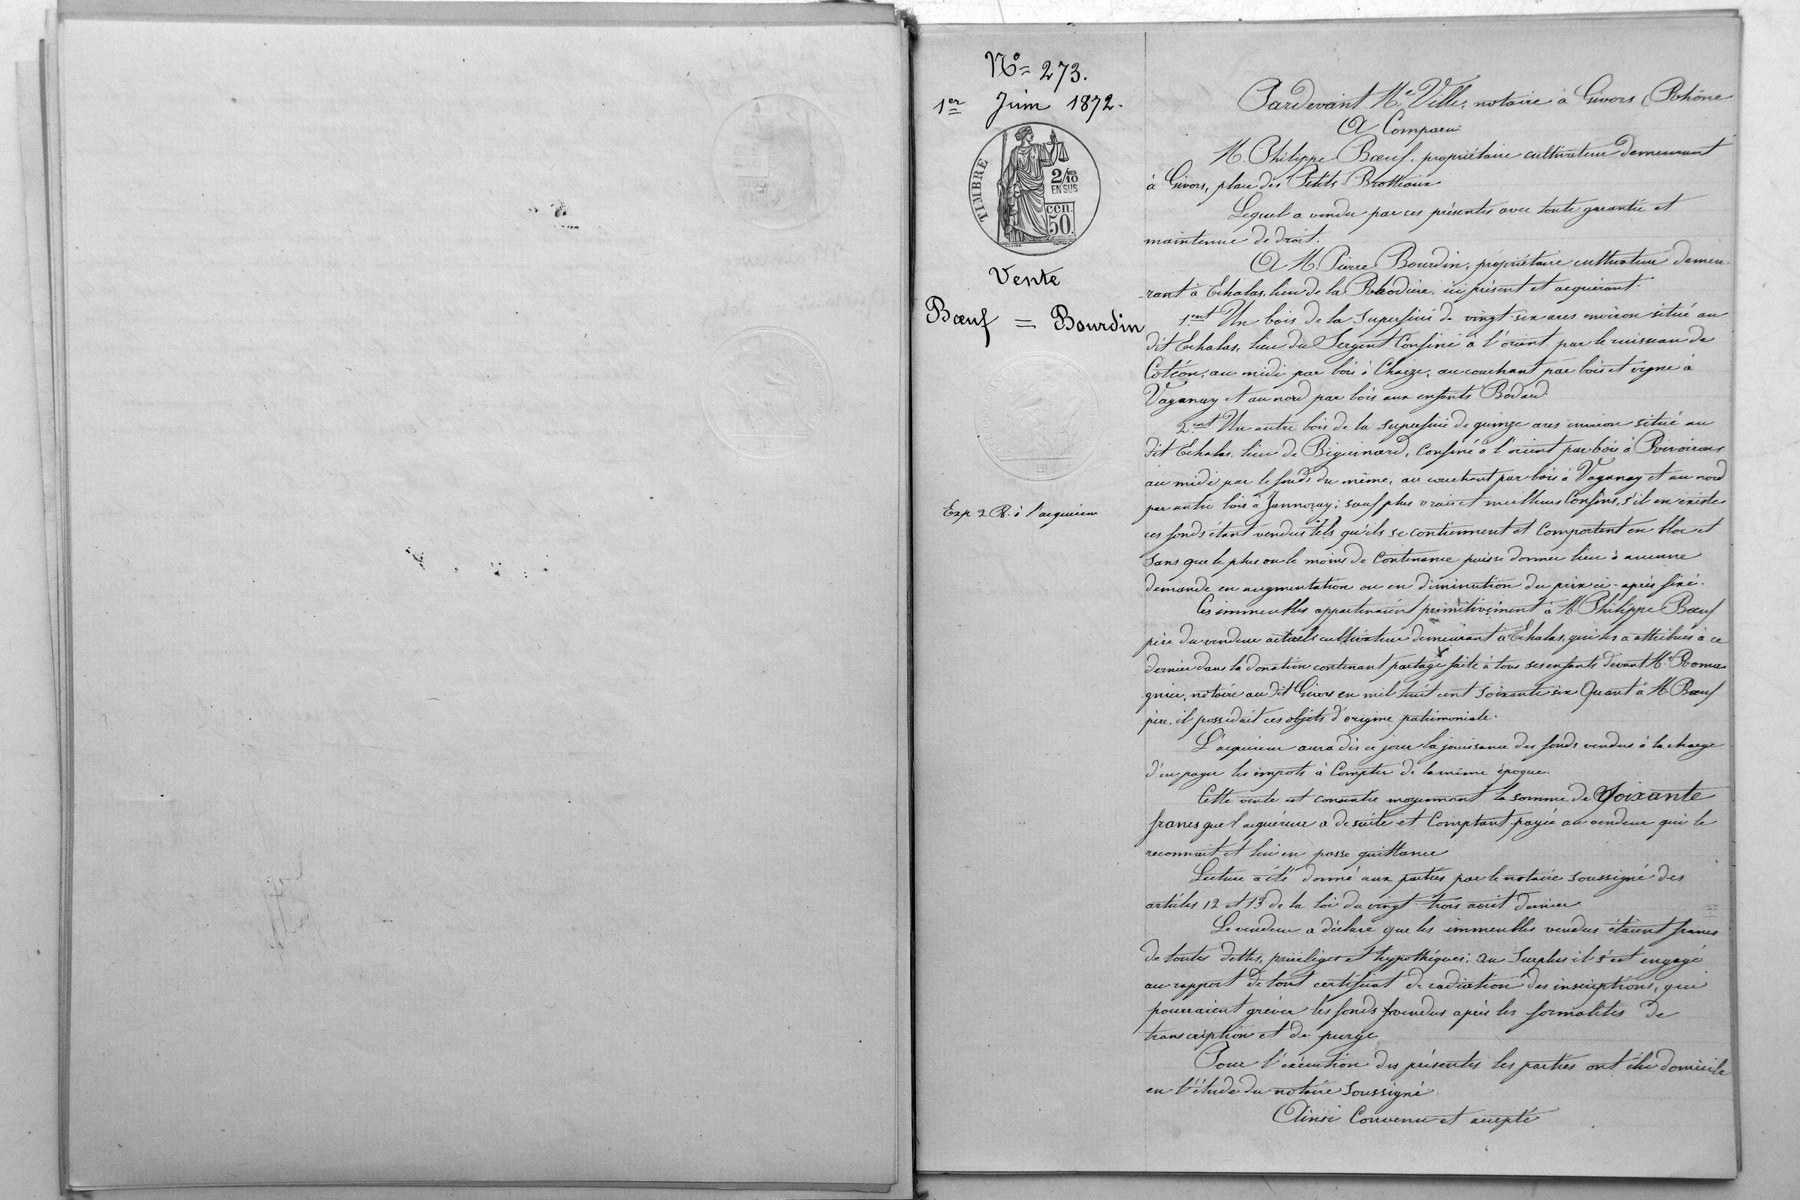 N° 273.
1er Juin 1872.
TIMBRE
2/10
EN SUS
cen.
50.
Vente
Bœuf = Bourdin
Exp. 2 R. à l'acquéreur
Pardevant Me Ville, notaire à Givors (Rhône
A Comparu
M. Philippe Bœuf, propriétaire cultivateur demeurant
à Givors, place des Petits Brotteaux
Lequel a vendu par ces présentes avec toute garantie et
maintenue de droit.
A M. Pierre Bourdin, propriétaire cultivateur demeu-
-rant à Echalas, lieu de la Rhodière, ici présent et acquérant.
1ent Un bois de la superficie de vingt six ares environ situé au
dit Echalas, lieu du Sergent Confiné à l'orient par le ruisseau de
Cotéon, au midi par bois à Charze, au couchant par bois et vigne à
Vaganay et au nord par bois aux enfants Bodard
2ent Un autre bois de la superficie de quinze ares environ situé au
dit Echalas, lieu de Biguinard, Confiné à l'orient par bois à
au midi par le fonds du même, au couchant par bois à Vaganay et au nord
par autre bois à Jannoray; sauf plus vrais et meilleurs Confins, s'il en existe
ces fonds étant vendus tels qu'ils se contiennent et Comportent en bloc et
sans que le plus ou le moins de Contenance puisse donner lieu à aucune
demande en augmentation ou en diminution du prix ci-après fixé.
Ces immeubles appartenaient primitivement à M. Philippe Bœuf
père du vendeur actuel cultivateur demeurant à Echalas, qui les a attribués à ce
dernier dans la donation contenant partage faite à tous ses enfants devant Me Roma-
gnier, notaire au dit Givors en mil huit cent soixante six Quant à M. Bœuf
père, il possédait ces objets d'origine patrimoniale.
L'acquéreur aura dès ce jour la jouissance des fonds vendus à la charge
d'en payer les impots à Compter de la même époque.
Cette vente est consentie moyennant la somme de Soixante
francs que l'acquéreur a de suite et Comptant payée au vendeur qui le
reconnait et lui en passe quittance
Lecture a été donné aux parties par le notaire soussigné des
articles 12 et 13 de la loi du vingt-trois août dernier
Le vendeur a déclaré que les immeubles vendus étaient francs
de toutes dettes, privilèges et hypothèques; au Surplus il s'est engagé
au rapport de tout certificat de radiation des inscriptions, qui
pourraient gréver les fonds vendus après les formalités de
transcription et de purge
Pour l'exécution des présentes les parties ont élu domicile
en l'étude du notaire Soussigné
Ainsi Convenu et accepté